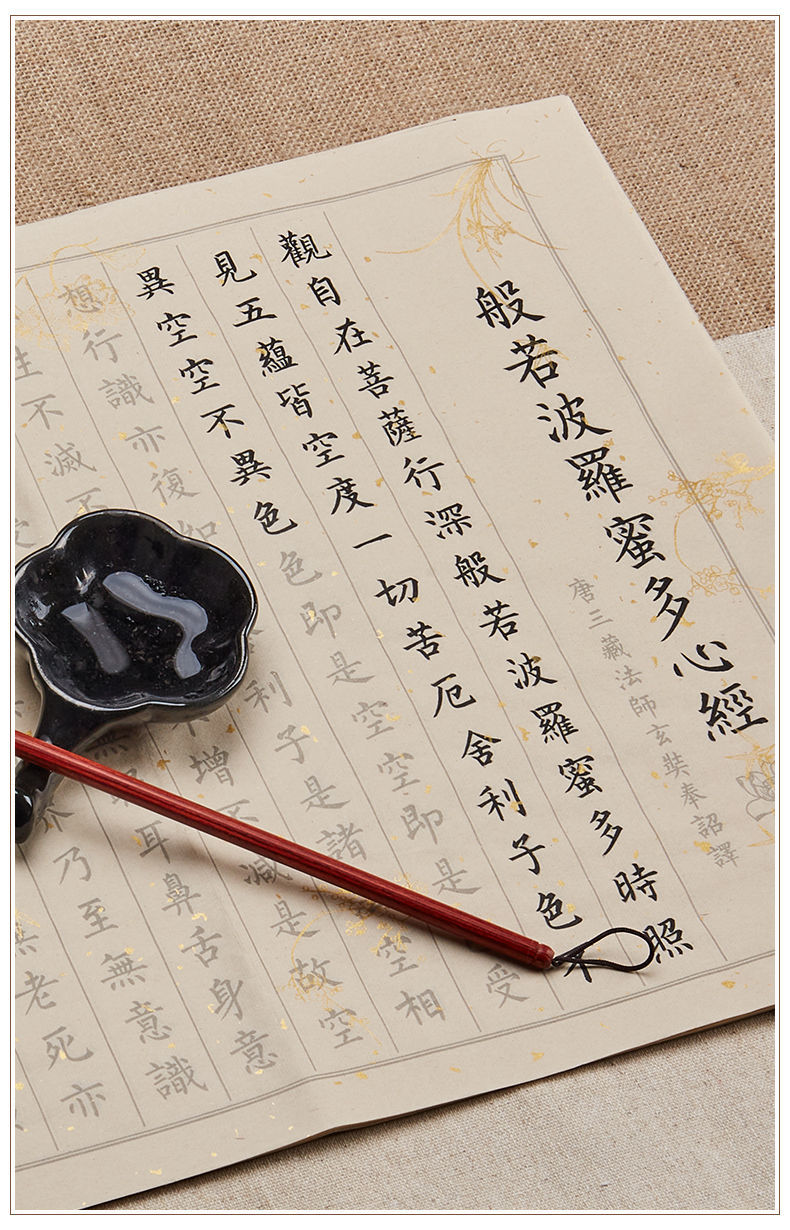 般若波羅蜜多心經
唐三藏法師玄奘奉詔譯
觀自在菩薩行深般若波羅蜜多時照
見五蘊皆空度一切苦厄舍利子色不
異空空不異色色即是空空即是受
想行識亦復如利子是諸空相
生不滅不增不減是故空
無耳鼻舌身意
界乃至無意識
老死亦